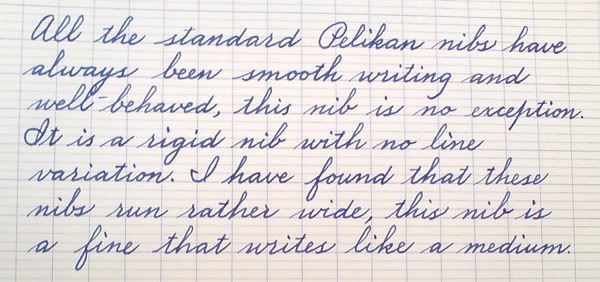 All the standard Pelikan nibs have
always been smooth writing and
well-behaved, this nib is no exception.
It is a rigid nib with no line
variation. I have found that these
nibs run rather wide, this nib is
a fine that writes like a medium.